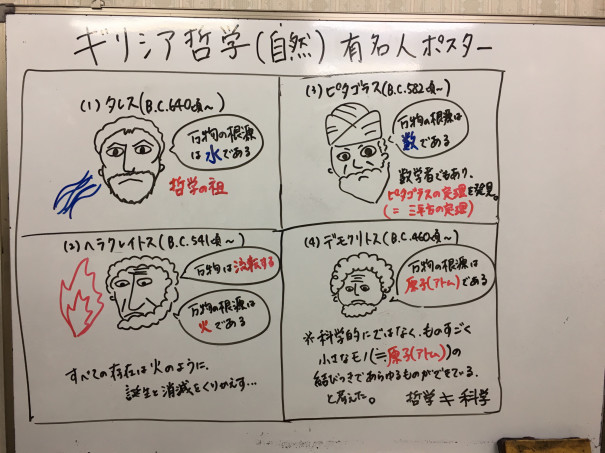 ギリシア哲学(自然)有名人ポスター
(1)タレス(B.C.640頃~)
万物の根源
は水である
哲学の祖
(2)ヘラクレイトス(B.C.541頃~)
万物は流転する
万物の根源は
火である
すべての存在は火のように、
誕生と消滅をくりかえす…
(3)ピタゴラス(B.C.582頃~)
万物の根源は
数である
数学者でもあり、
ピタゴラスの定理を発見。
(=三平方の定理)
(4)デモクリトス(B.C.460頃~)
万物の根源は
原子(アトム)である
※科学的にではなく、ものすごく
小さなモノ(≒原子(アトム))の
結びつきであらゆるものができている、
と考えた。
哲学≠科学